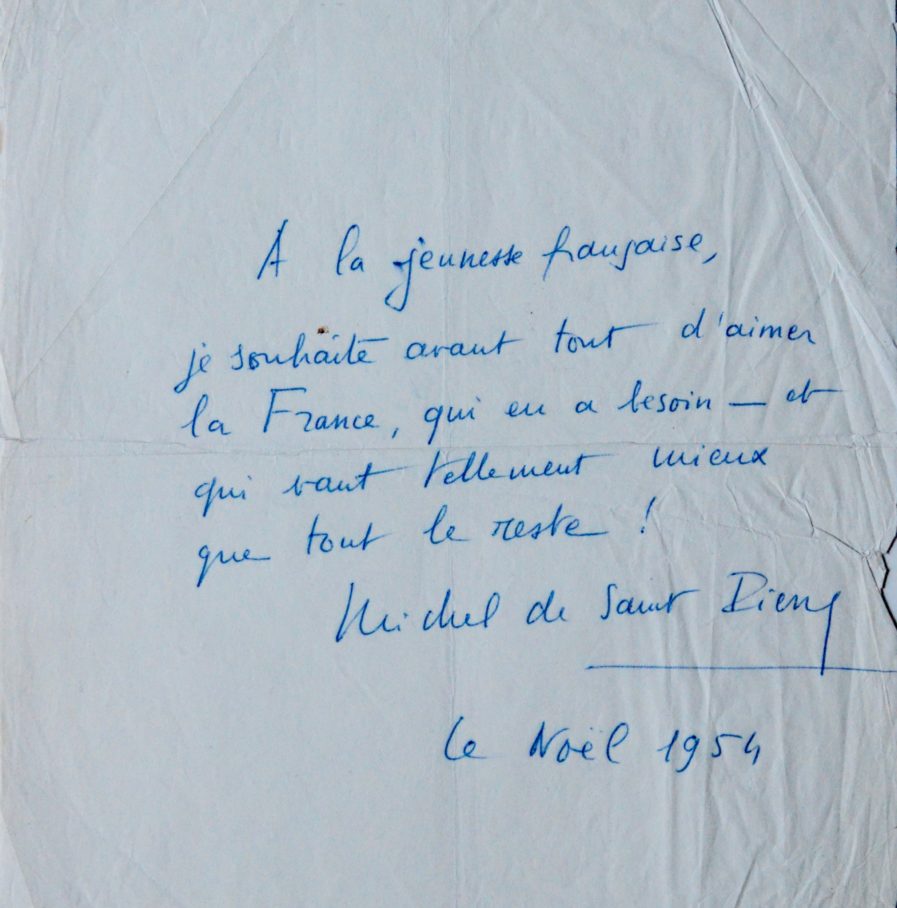 A la jeunesse française,
je souhaite avant tout d'aimer
la France, qui en a besoin — et
qui vaut tellement mieux
que tout le reste !
Michel de Saint Pierre
Le Noël 1954